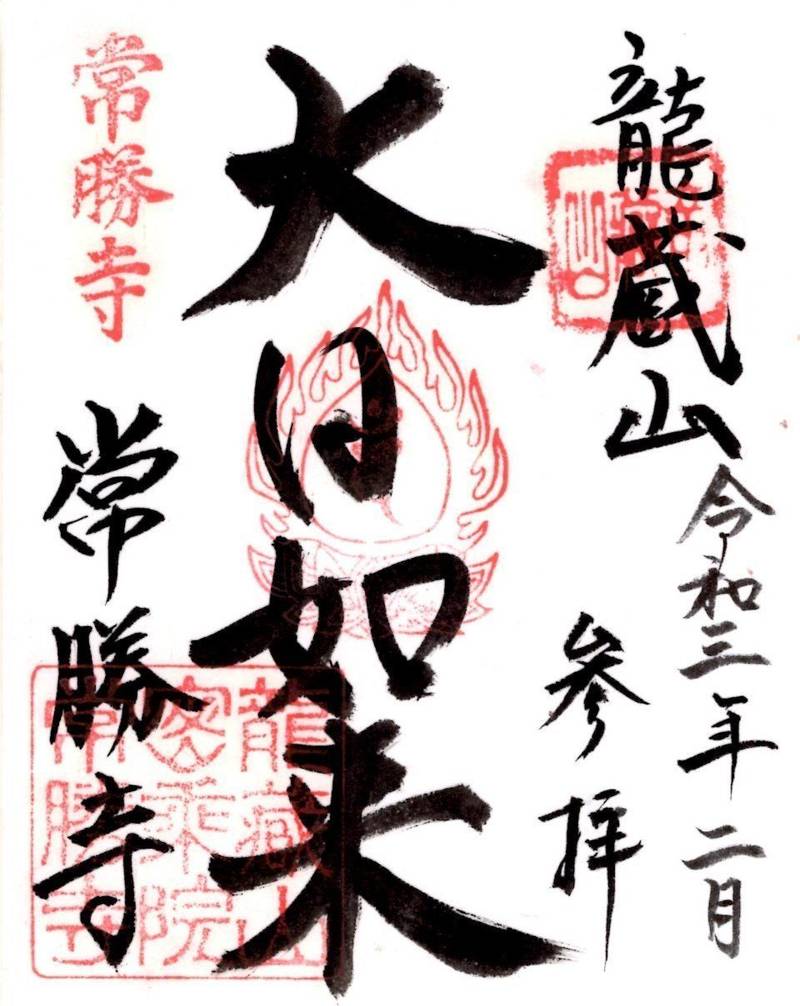 龍蔵山
令和三年二月
参拝
大日如来
常勝寺
常勝寺
龍蔵山
密乘院
常勝寺